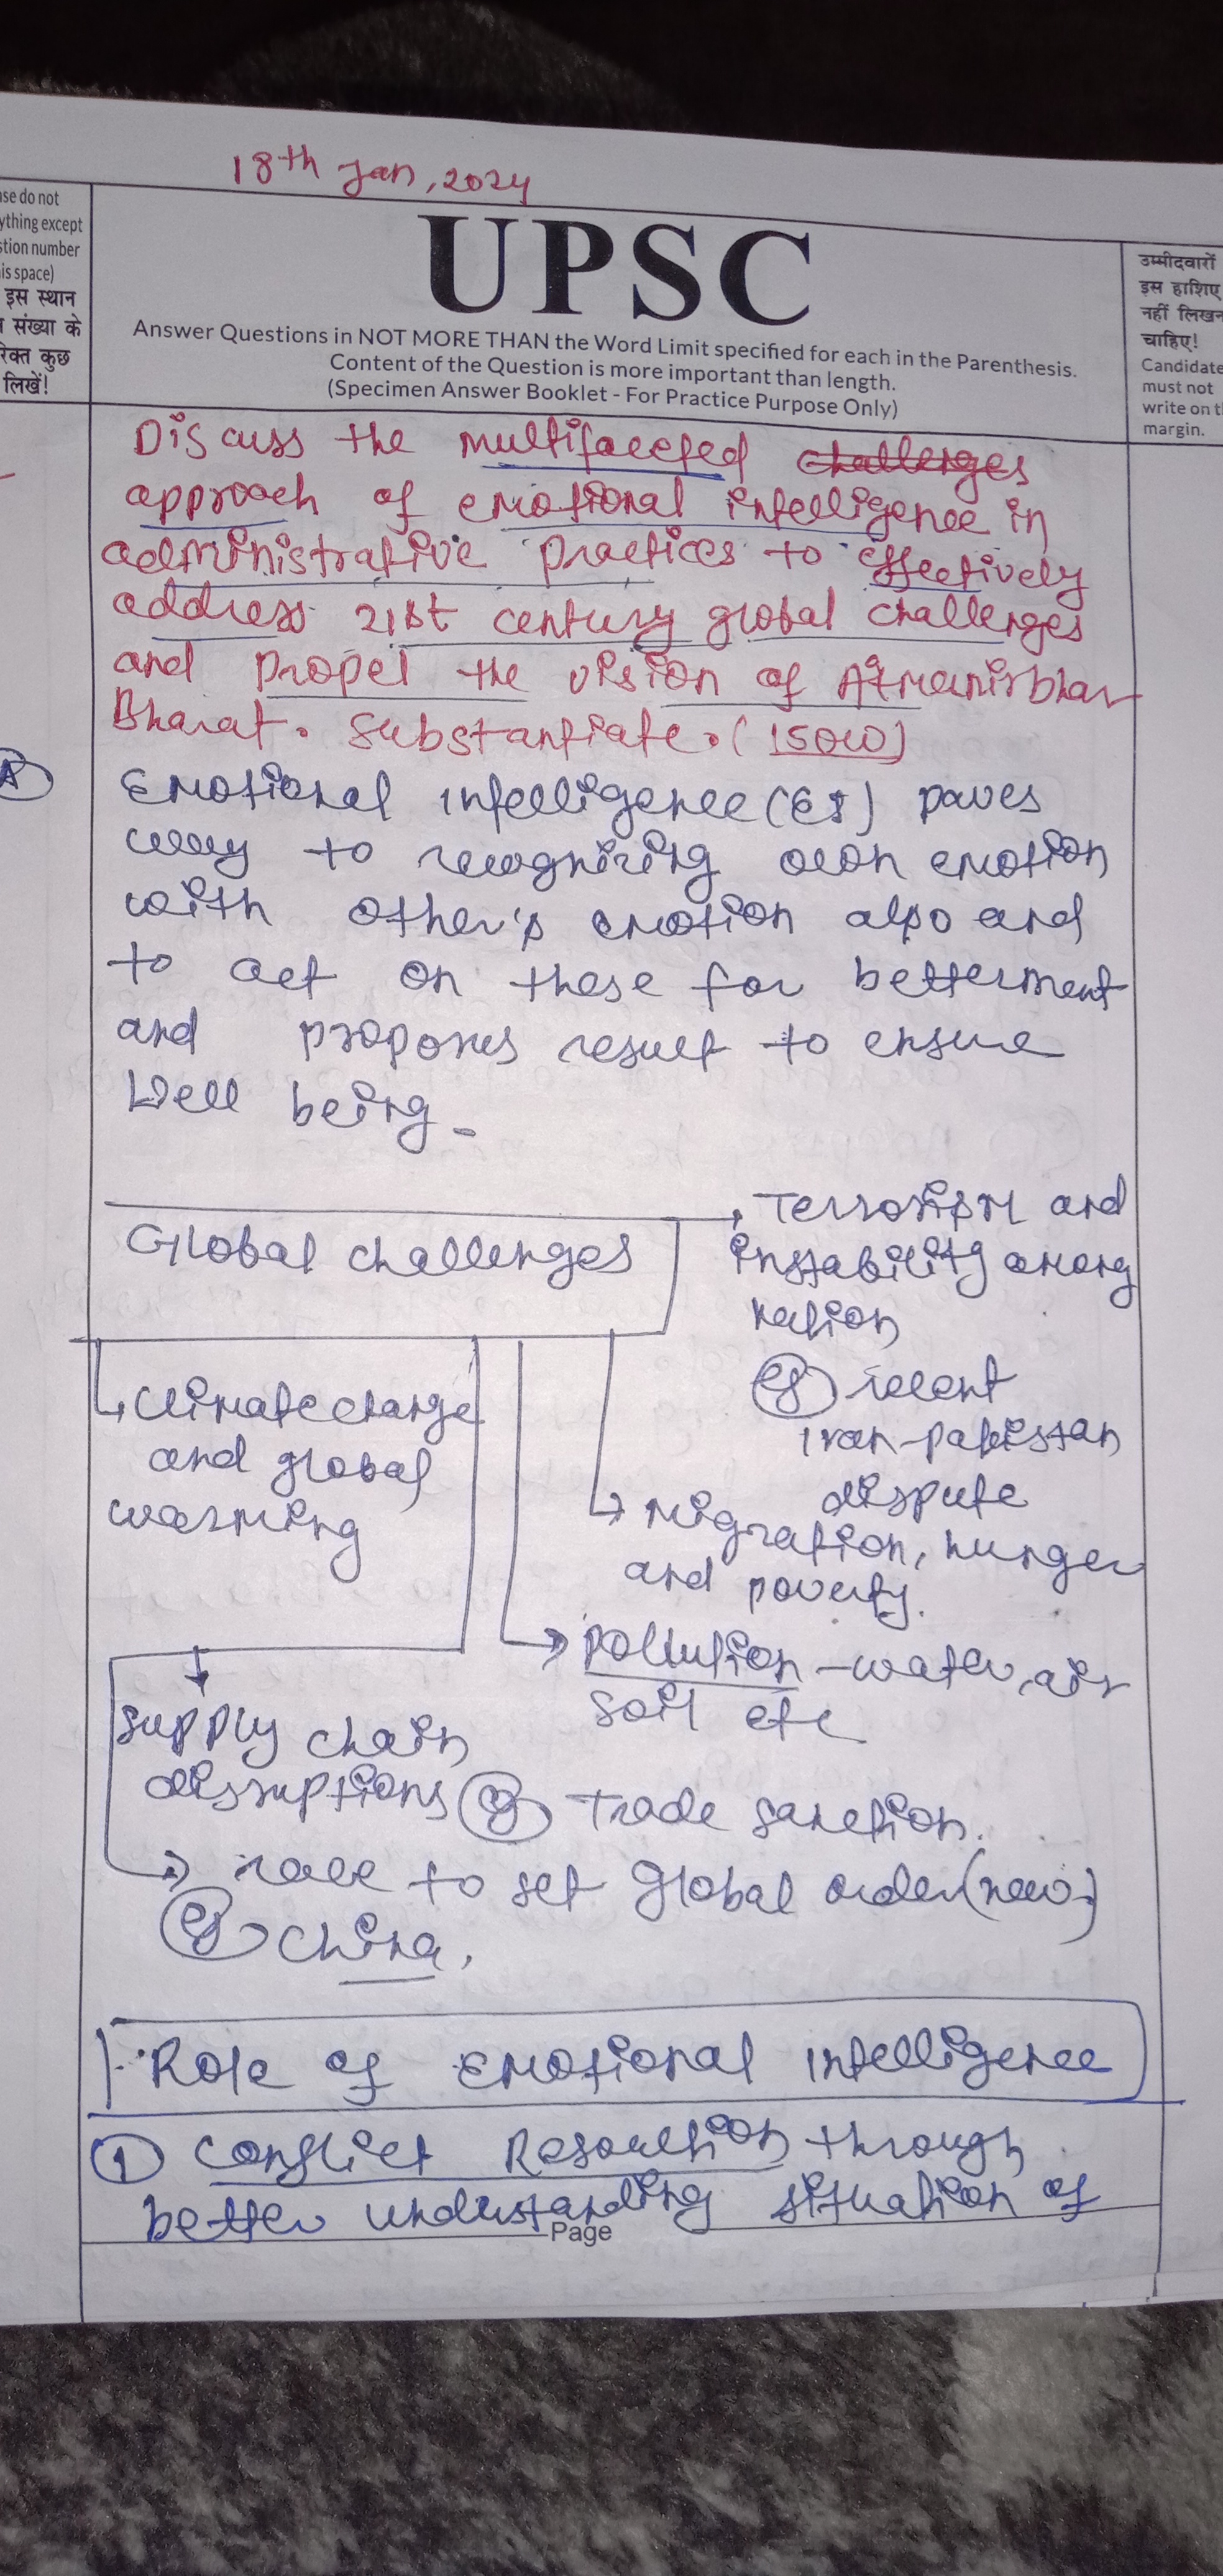 18th Jan, 2024
ase do not
ything except
stion number
is space)
इस स्थान
संख्या के
रिक्त कुछ
लिखें!
UPSC
Answer Questions in NOT MORE THAN the Word Limit specified for each in the Parenthesis.
Content of the Question is more important than length.
(Specimen Answer Booklet - For Practice Purpose Only)
उम्मीदवारों
इस हाशिए
नहीं लिखन
चाहिए!
Candidate
must not
write on t
margin.
Discuss the multifaceted challenges
approach of emotional intelligence in
administrative practices to effectively
address 21st century global challenges
and propel the vision of Atmanirbhar
Bharat. Substantiate. (150W)
A
Emotional intelligence (EI) paves
way to recognizing own emotion
with other's emotion also and
to act on these for betterment
and proposes result to ensure
Well being-
Global challenges
Terrorism and
instability among
nation
eg recent
Iran-Pakistan
dispute
Climate change
and global
warming
Migration, hunger
and poverty.
Pollution - water, air
soil etc
supply chain
disruptions eg Trade sanction.
race to set global order (new)
eg China.
Role of Emotional intelligence
1 Conflict Resolution through
better understanding situation of
Page